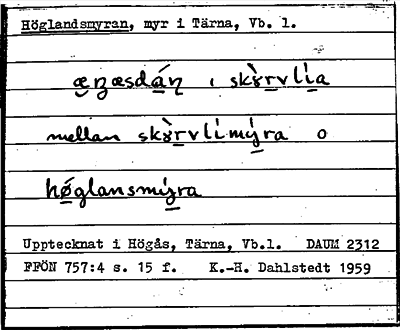 Höglandsmyran, myr i Tärna, Vb. l.
ænæsdán i skỳrvlìa
mellan skỳrvlimýra o
hǿglansmýra
Upptecknat i Högås, Tärna, Vb.l. DAUM 2312
FFÖN 757:4 s. 15 f. K.-H. Dahlstedt 1959